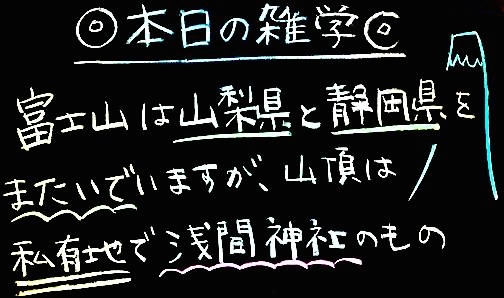 ◎本日の雑学◎
富士山は山梨県と静岡県を
またいでいますが、山頂は
私有地で浅間神社のもの